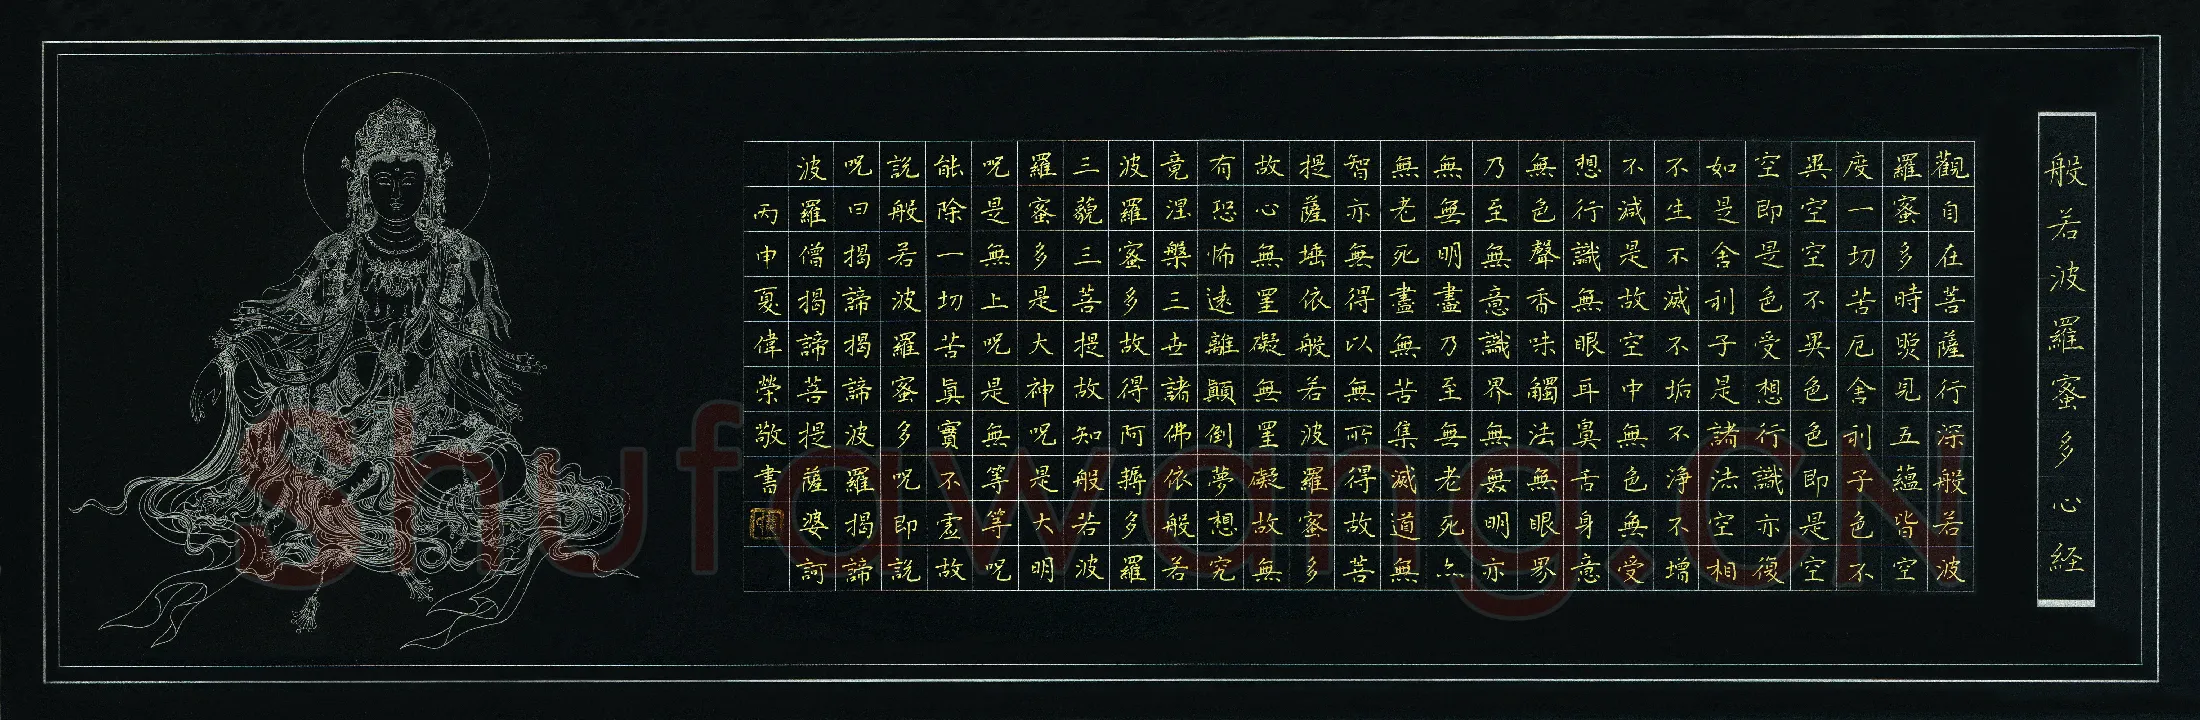 般若波羅蜜多心経
觀自在菩薩行深般若波
羅蜜多時照見五蘊皆空
度一切苦厄舍利子色不
異空空不異色色即是空
空即是色受想行識亦復
如是舍利子是諸法空相
不生不滅不垢不淨不增
不減是故空中無色無受
想行識無眼耳鼻舌身意
無色聲香味觸法無眼界
乃至無意識界無無明亦
無無明盡乃至無老死亦
無老死盡無苦集滅道無
智亦無得以無所得故菩
提薩埵依般若波羅蜜多
故心無罣礙無罣礙故無
有恐怖遠離顛倒夢想究
竟涅槃三世諸佛依般若
波羅蜜多故得阿耨多羅
三藐三菩提故知般若波
羅蜜多是大神呪是大明
呪是無上呪是無等等呪
能除一切苦真實不虛故
說般若波羅蜜多呪即說
呪曰揭諦揭諦波羅揭諦
波羅僧揭諦菩提薩婆訶
丙申夏偉榮敬書
Shufawang.CN